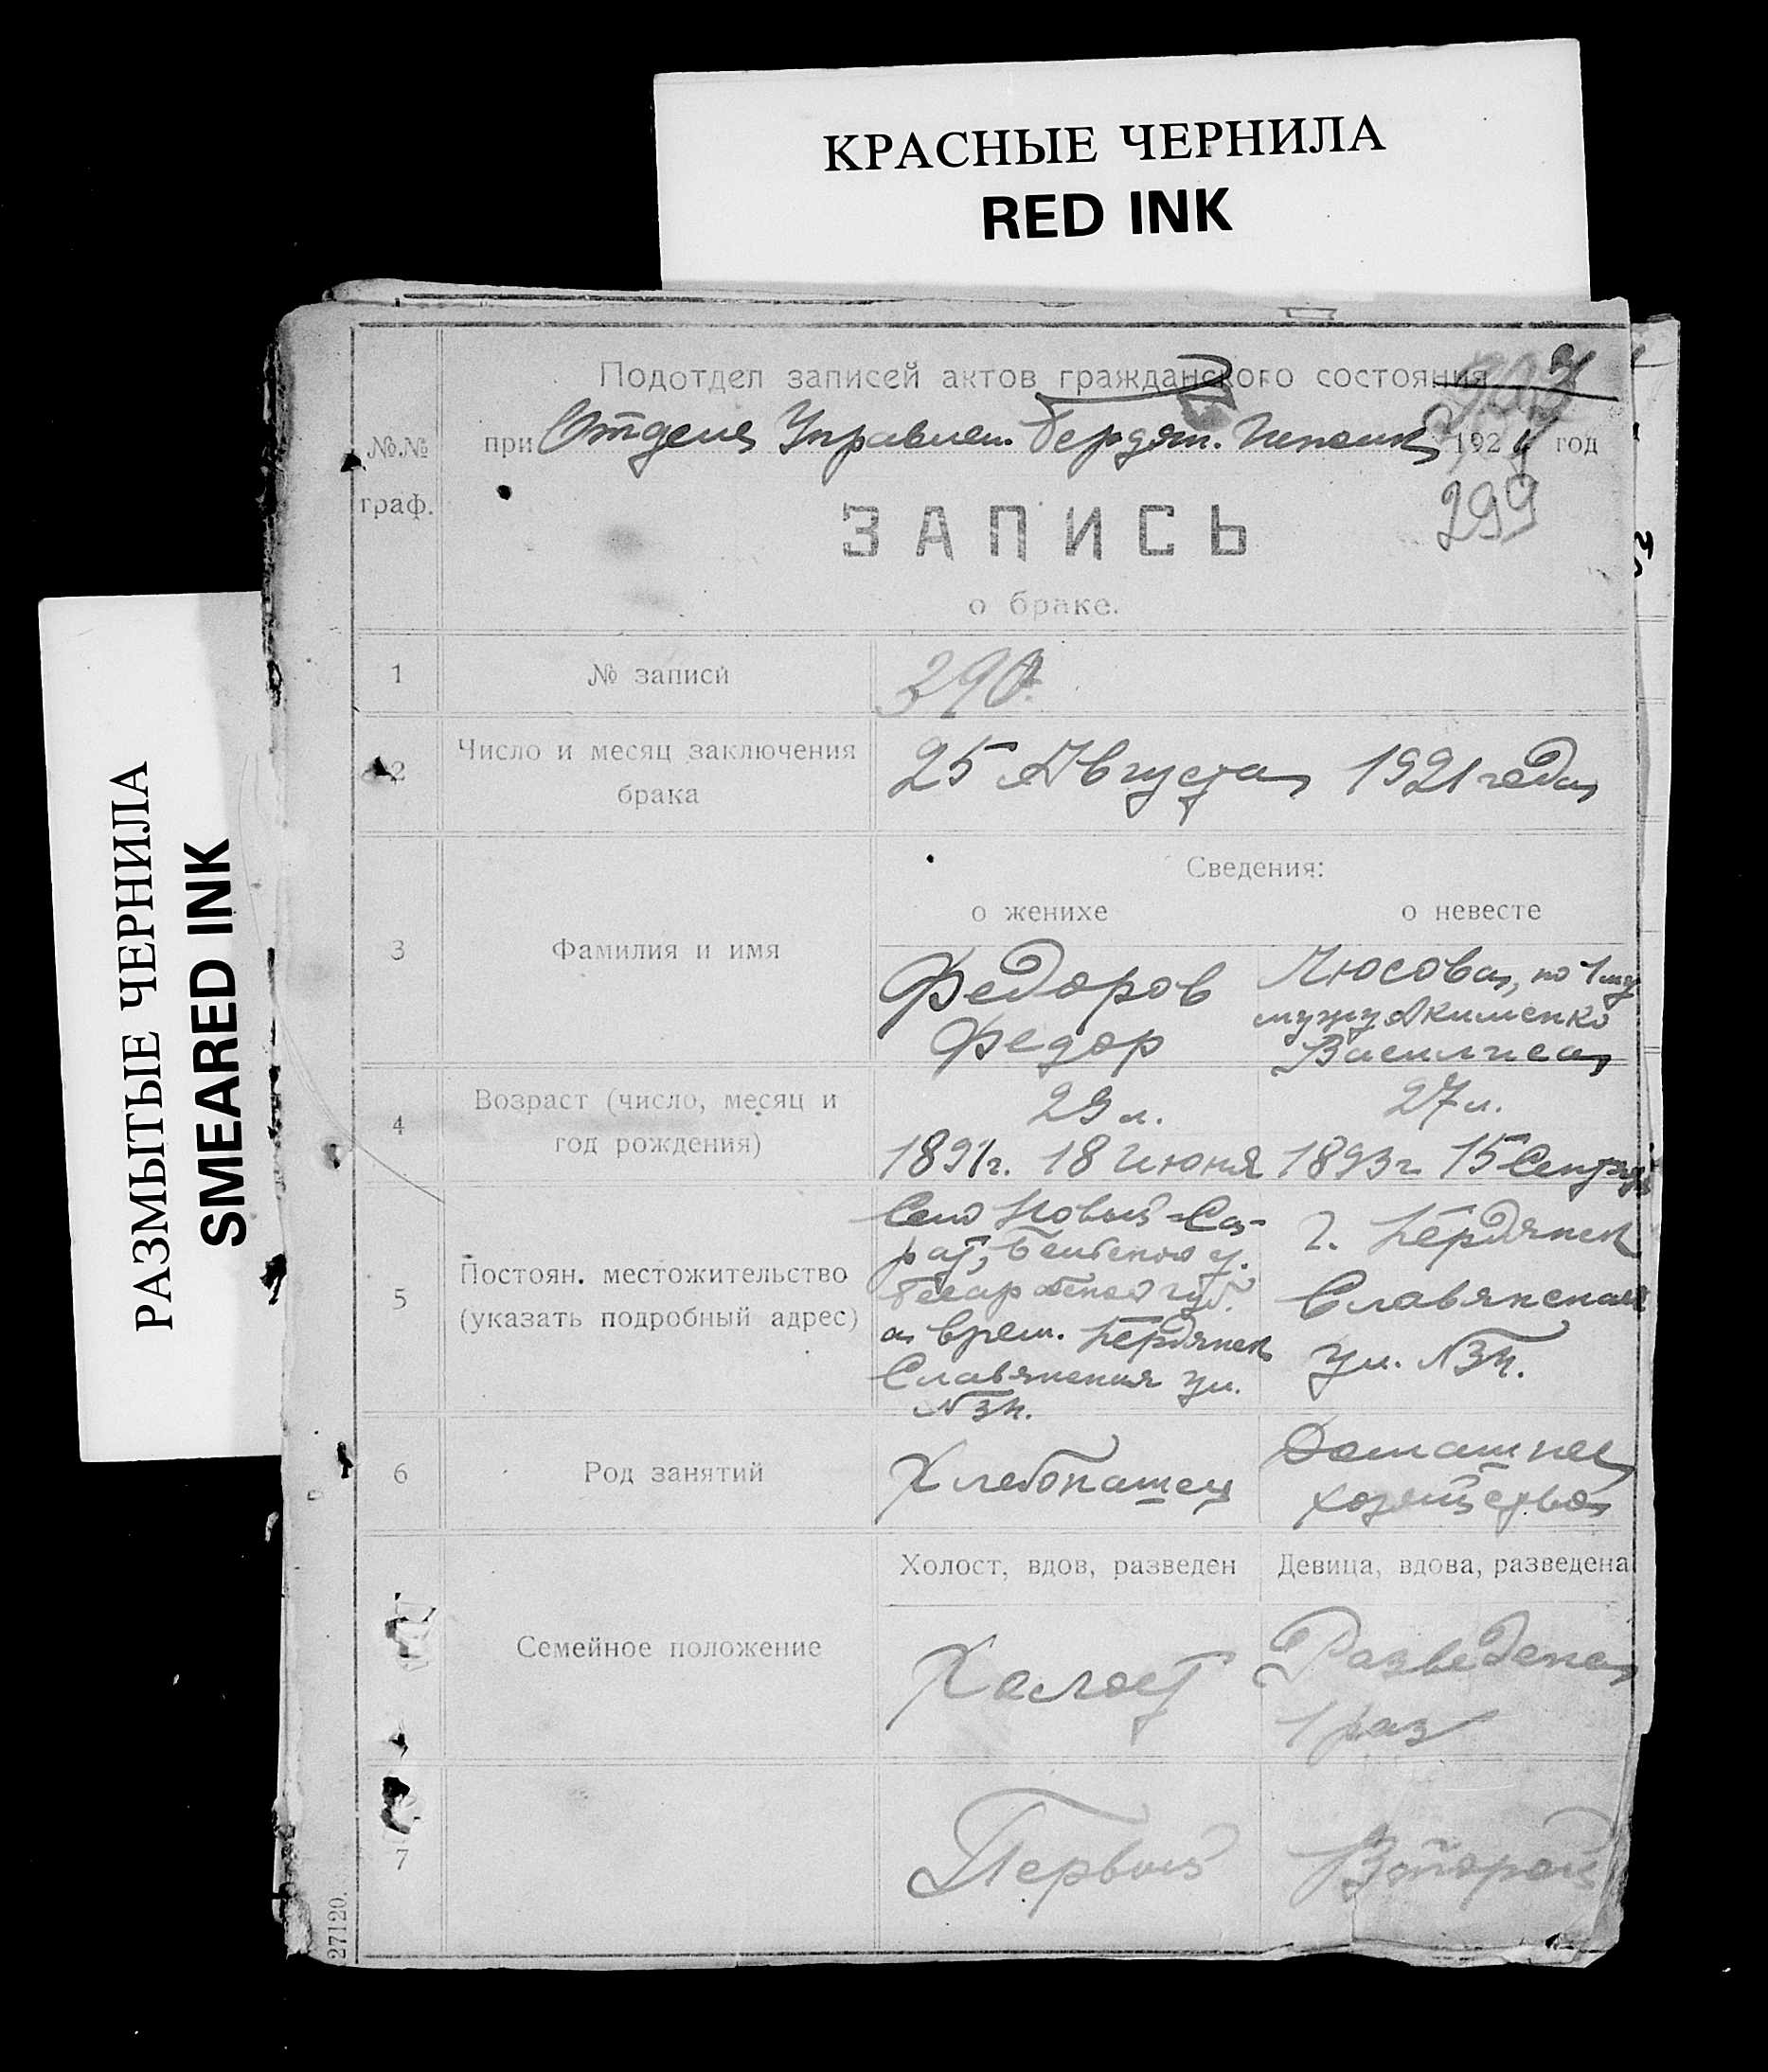 КРАСНЫЕ ЧЕРНИЛА
RED INK
РАЗМЫТЫЕ ЧЕРНИЛА
SMEARED INK
Подотдел записей актов гражданского состояния
№.№ граф.
при Отделе Управлен. Бердян. 1921 год
299
ЗАПИСЬ
о браке.
1 № записи 290
2 Число и месяц заключения брака 25 Августа 1921 года
Сведения:
о женихе о невесте
3 Фамилия и имя
Федоров
Федор
Люсова, по 1му
мужу Акименко
Василиса
4 Возраст (число, месяц и год рождения)
29 л.
1891г. 18 Июня
27 л.
1893г. 15 Сентяб
5 Постоян. местожительство
(указать подробный адрес)
Село Новый-Са-
рат,
губ.
а врем. Бердянск
Славянская ул.
г. Бердянск
Славянская
ул.
6 Род занятий
Хлебопашец
Домашнее
хозяйство
Холост, вдов, разведен
Девица, вдова, разведена
Семейное положение
Холост
Разведена
1 раз
7
Первый
Второй
27120.